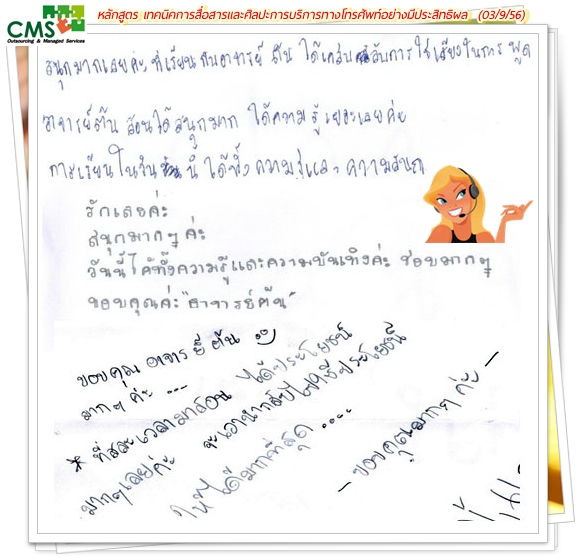 CMS
Outsourcing & Managed Services
หลักสูตร เทคนิคการสื่อสารและศิลปะการบริการทางโทรศัพท์อย่างมีประสิทธิผล (03/9/56)
สนุกมากเลยค่ะ ที่เรียนกับอาจารย์ ต้น ได้เคล็บลับการใช้เสียงในการพูด
อาจารย์ต้น สอนได้สนุกมาก ได้ความรู้เยอะเลยค่ะ
การเรียนในวันนี้ ได้ทั้งความรู้และความสนุก
รักเลยค่ะ
สนุกมากๆ ค่ะ
วันนี้ได้ทั้งความรู้และความบันเทิงค่ะ ชอบมากๆ
ขอบคุณค่ะ "อาจารย์ต้น"
ขอบคุณ อาจารย์ ต้น
มากๆ ค่ะ ...
* ที่สละเวลามาสอน ได้ประโยชน์
มากๆเลยค่ะ จะเอากลับไปใช้ประโยชน์
ให้ได้มากที่สุด ....
- ขอบคุณมากๆ ค่ะ -